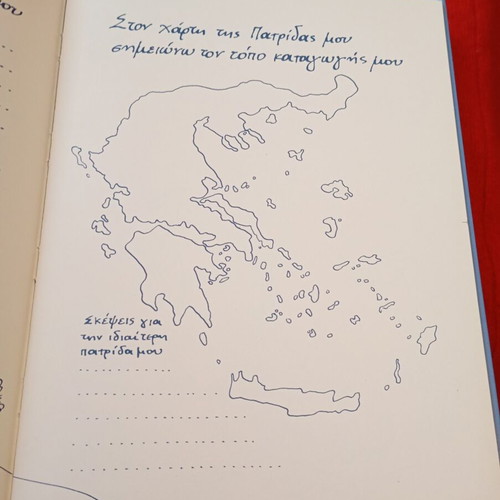 Στον χάρτη της Πατρίδας μου
σημειώνω τον τόπο καταγωγής μου
Σκέψεις για
την ιδιαίτερη
πατρίδα μου